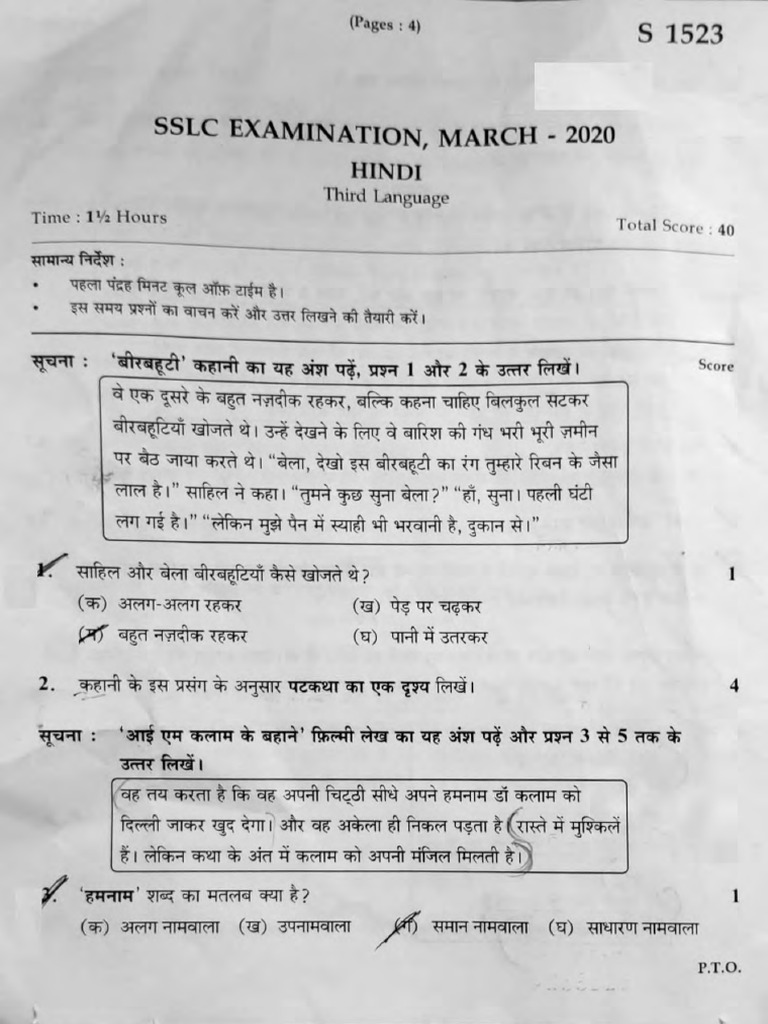 (Pages : 4)
S 1523
SSLC EXAMINATION, MARCH - 2020
HINDI
Third Language
Time : 1½ Hours
Total Score : 40
सामान्य निर्देश :
• पहला पंद्रह मिनट कूल ऑफ़ टाईम है।
• इस समय प्रश्नों का वाचन करें और उत्तर लिखने की तैयारी करें।
सूचना : 'बीरबहूटी' कहानी का यह अंश पढ़ें, प्रश्न 1 और 2 के उत्तर लिखें। Score
वे एक दूसरे के बहुत नज़दीक रहकर, बल्कि कहना चाहिए बिलकुल सटकर
बीरबहूटियाँ खोजते थे। उन्हें देखने के लिए वे बारिश की गंध भरी भूरी ज़मीन
पर बैठ जाया करते थे। "बेला, देखो इस बीरबहूटी का रंग तुम्हारे रिबन के जैसा
लाल है।" साहिल ने कहा। "तुमने कुछ सुना बेला?" "हाँ, सुना। पहली घंटी
लग गई है।" "लेकिन मुझे पैन में स्याही भी भरवानी है, दुकान से।"
1. साहिल और बेला बीरबहूटियाँ कैसे खोजते थे? 1
(क) अलग-अलग रहकर (ख) पेड़ पर चढ़कर
(ग) बहुत नज़दीक रहकर (घ) पानी में उतरकर
2. कहानी के इस प्रसंग के अनुसार पटकथा का एक दृश्य लिखें। 4
सूचना : 'आई एम कलाम के बहाने' फ़िल्मी लेख का यह अंश पढ़ें और प्रश्न 3 से 5 तक के
उत्तर लिखें।
वह तय करता है कि वह अपनी चिट्ठी सीधे अपने हमनाम डॉ कलाम को
दिल्ली जाकर खुद देगा। और वह अकेला ही निकल पड़ता है। रास्ते में मुश्किलें
हैं। लेकिन कथा के अंत में कलाम को अपनी मंजिल मिलती है।
3. 'हमनाम' शब्द का मतलब क्या है? 1
(क) अलग नामवाला (ख) उपनामवाला (ग) समान नामवाला (घ) साधारण नामवाला
P.T.O.